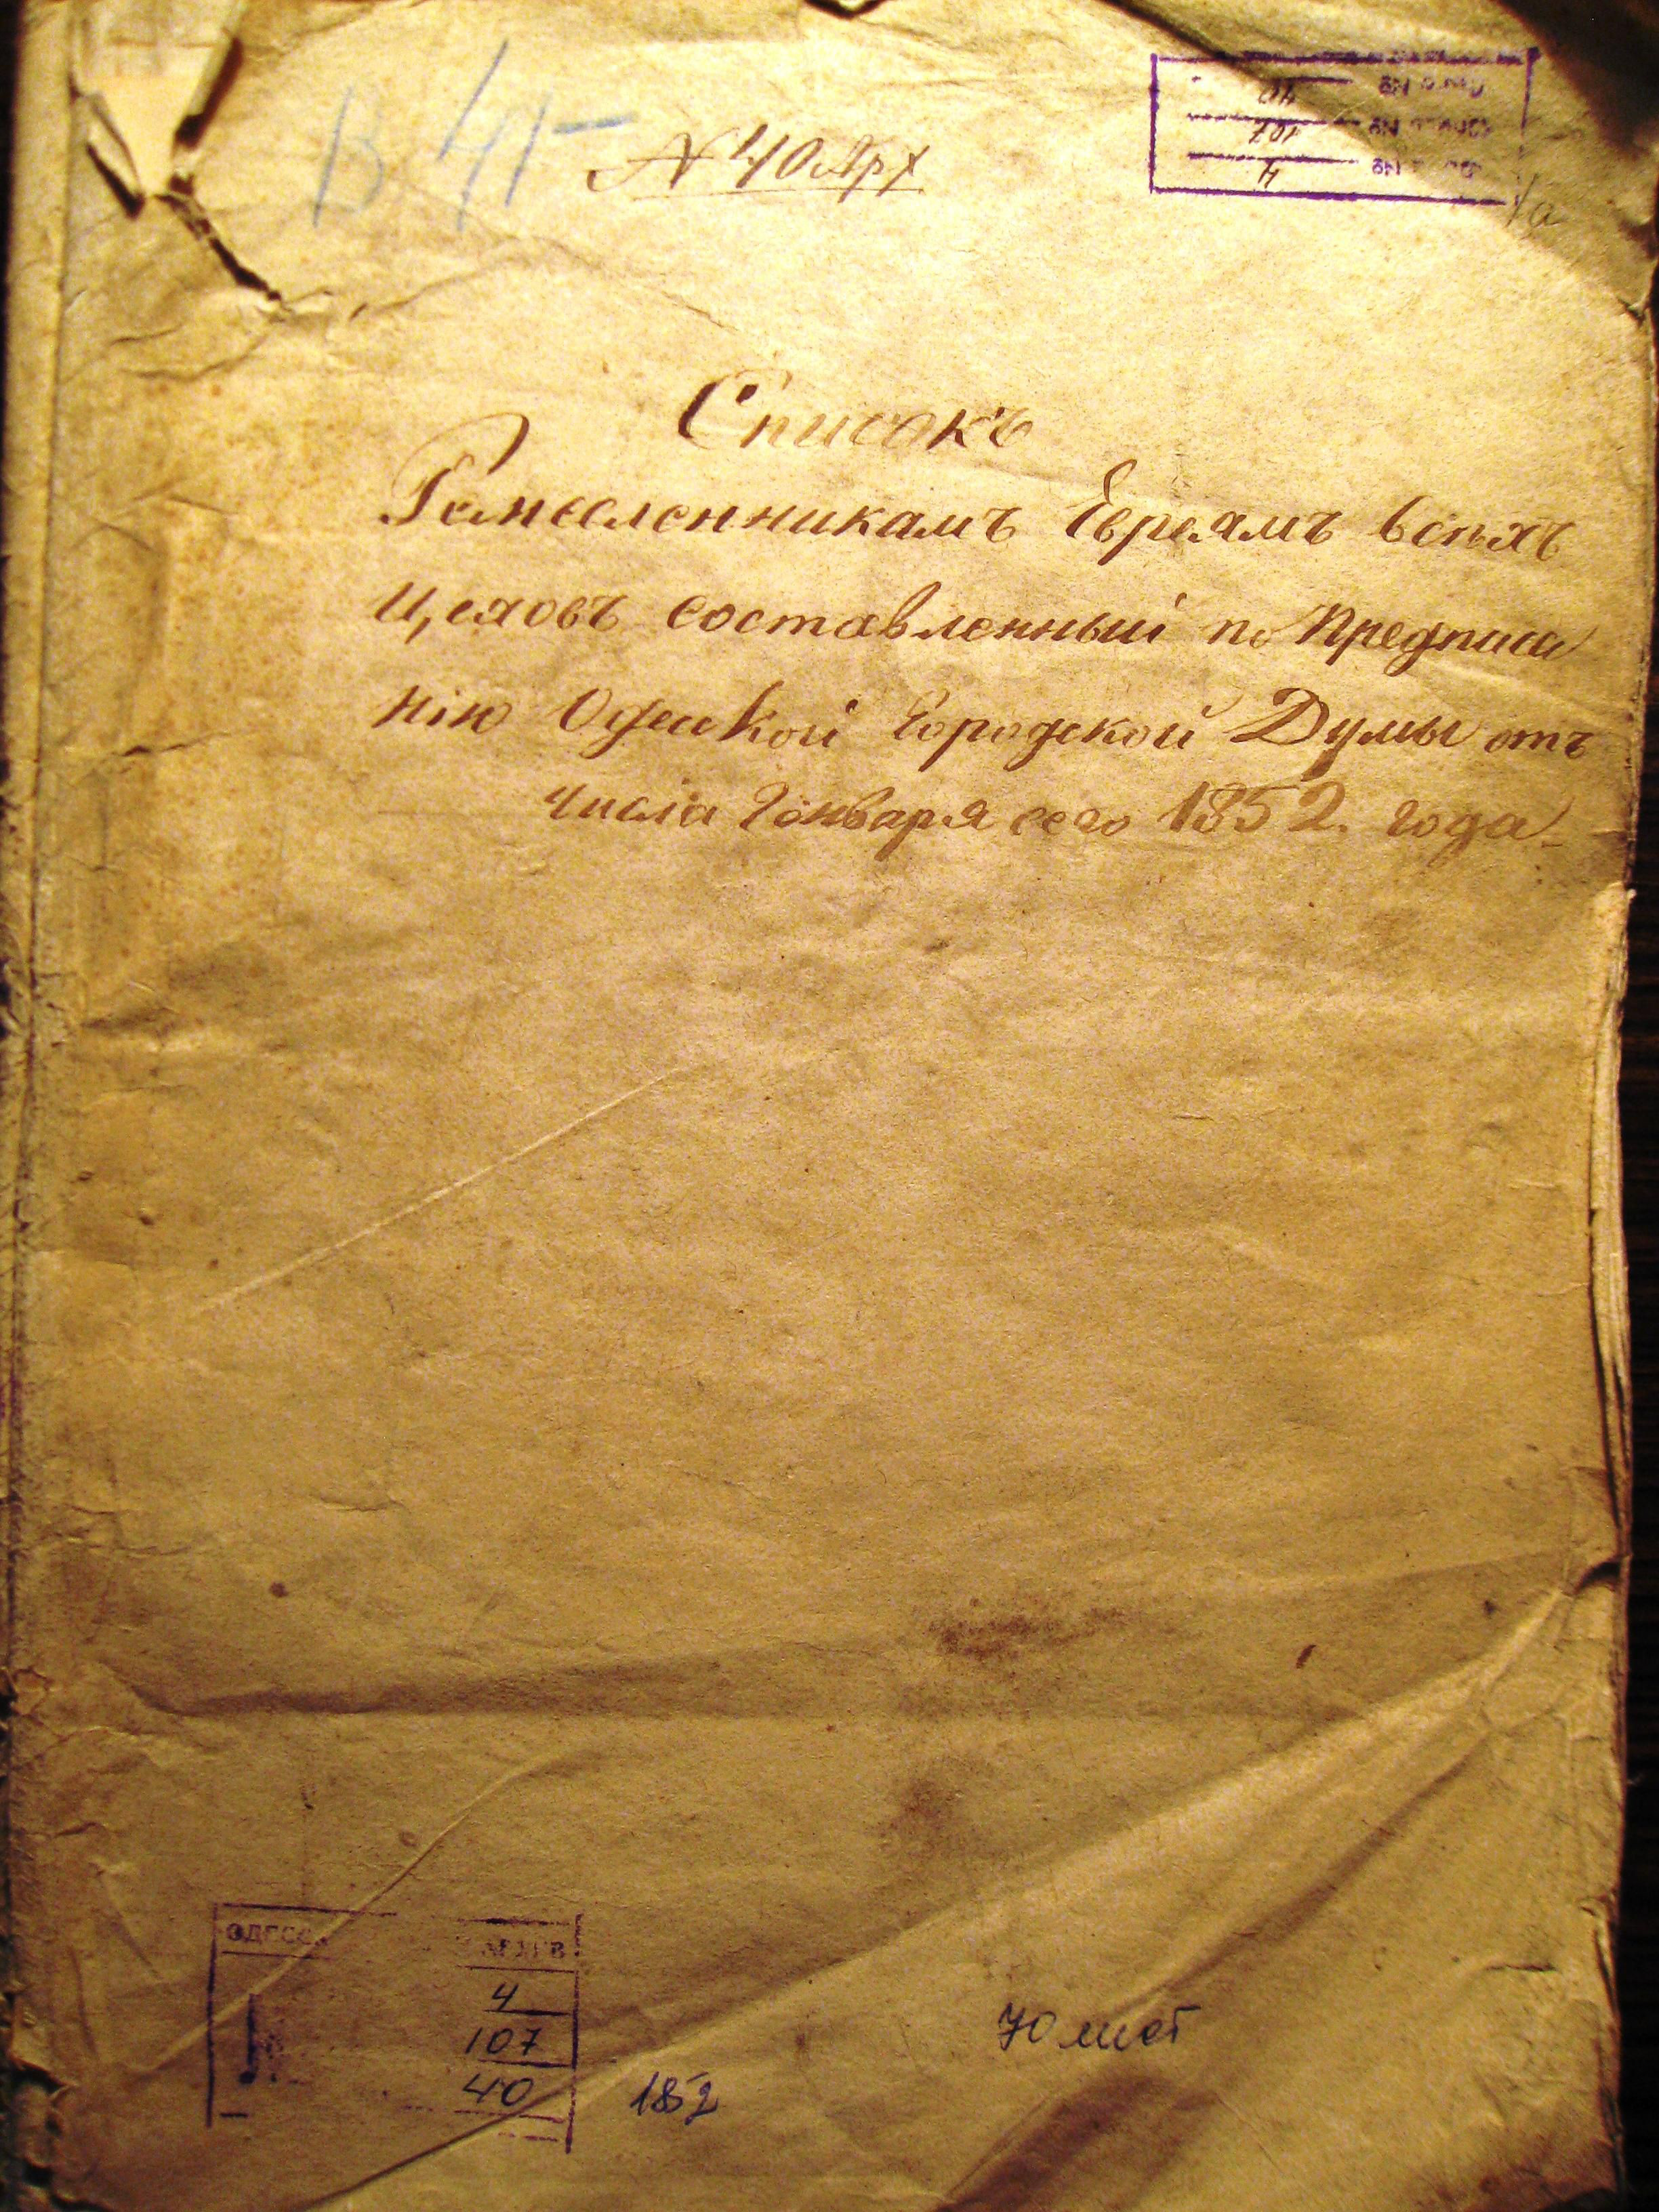 В 41 —
№ 40 Арх
Дело № 40
Опись № 107
Фонд № 4
1а
Списокъ
Ремесленникамъ Евреямъ всѣхъ
Цеховъ составленный по Предписа
нію Одесской Городской Думы отъ
числа Генваря сего 1852. года
ОДЕССК АРХИВ
4
107
40
1852
70 лист